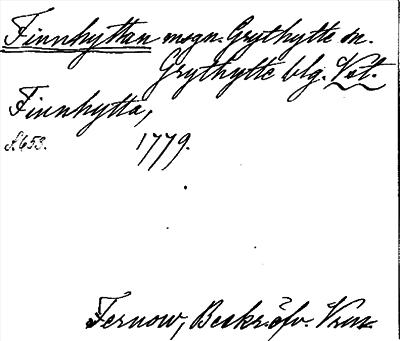 Finnhyttan msgn. Grythytte sn.
Grythytte blg. Vstl.
Finnhytta,
S. 653. 1779.
Fernow, Beskr. öfv. Vrml.